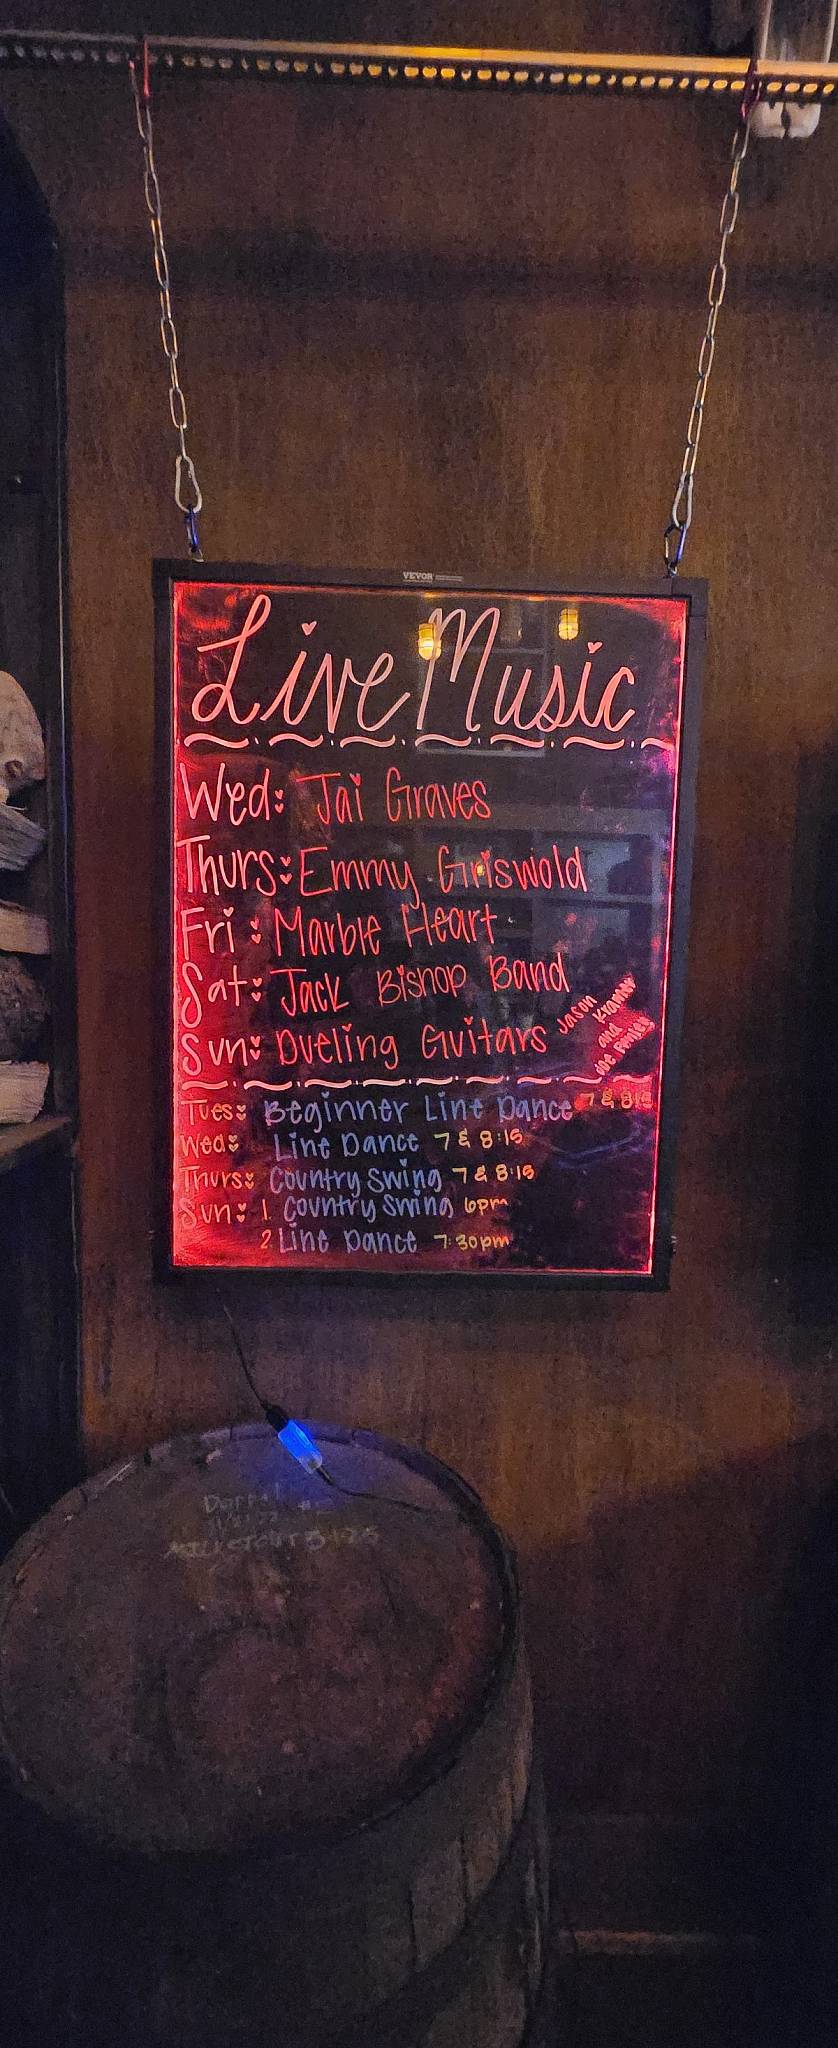 VEVOR
Live Music
Wed: Jai Graves
Thurs: Emmy Griswold
Fri: Marble Heart
Sat: Jack Bishop Band
Sun: Dueling Guitars Jason Kramer and Joe
Tues: Beginner Line Dance 7 & 8:15
Wed: Line Dance 7 & 8:15
Thurs: Country Swing 7 & 8:15
Sun: 1. Country Swing 6pm
2. Line Dance 7:30pm